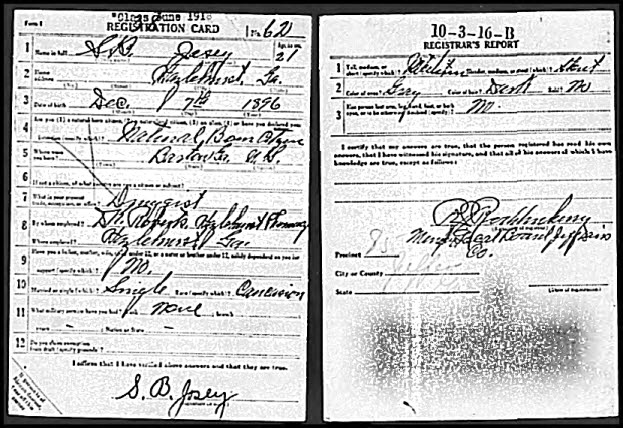 "Class June 1918"
Form 1 REGISTRATION CARD No. 62
1 Name in full S. B. Josey Age, in yrs. 21
2 Home address Hazlehurst, Ga.
3 Date of birth Dec. 7th 1896
4 Are you (1) a natural-born citizen, (2) a naturalized citizen, (3) an alien, (4) or have you declared your intention (specify which)? Natural Born Citizen
5 Where were you born? Ga. U.S.
6 If not a citizen, of what country are you a citizen or subject?
7 What is your present trade, occupation, or office? Druggist
8 By whom employed? Hazlehurst Pharmacy
Where employed? Hazlehurst Ga.
9 Have you a father, mother, wife, child under 12, or a sister or brother under 12, solely dependent on you for support (specify which)? No.
10 Married or single (which)? Single Race (specify which)? Caucasian
11 What military service have you had? Rank None ; branch
years ; Nation or State
12 Do you claim exemption from draft (specify grounds)?
I affirm that I have verified above answers and that they are true.
S. B. Josey
10-3-16-B
REGISTRAR'S REPORT
1 Tall, medium, or short (specify which)? Medium Slender, medium, or stout (which)? Stout
2 Color of eyes? Gray Color of hair? Dark Bald? No
3 Has person lost arm, leg, hand, foot, or both eyes, or is he otherwise disabled (specify)? No.
I certify that my answers are true, that the person registered has read his own answers, that I have witnessed his signature, and that all of his answers of which I have knowledge are true, except as follows:
(Signature of registrar)
Local Board Jeff Davis
Co.
Precinct
City or County
State (Date of registration)